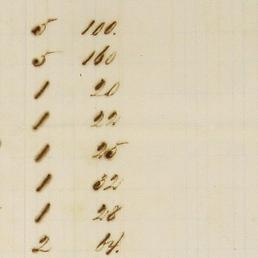 5 100.
5 160
1 20
1 22
1 25
1 32
1 28
2 64.